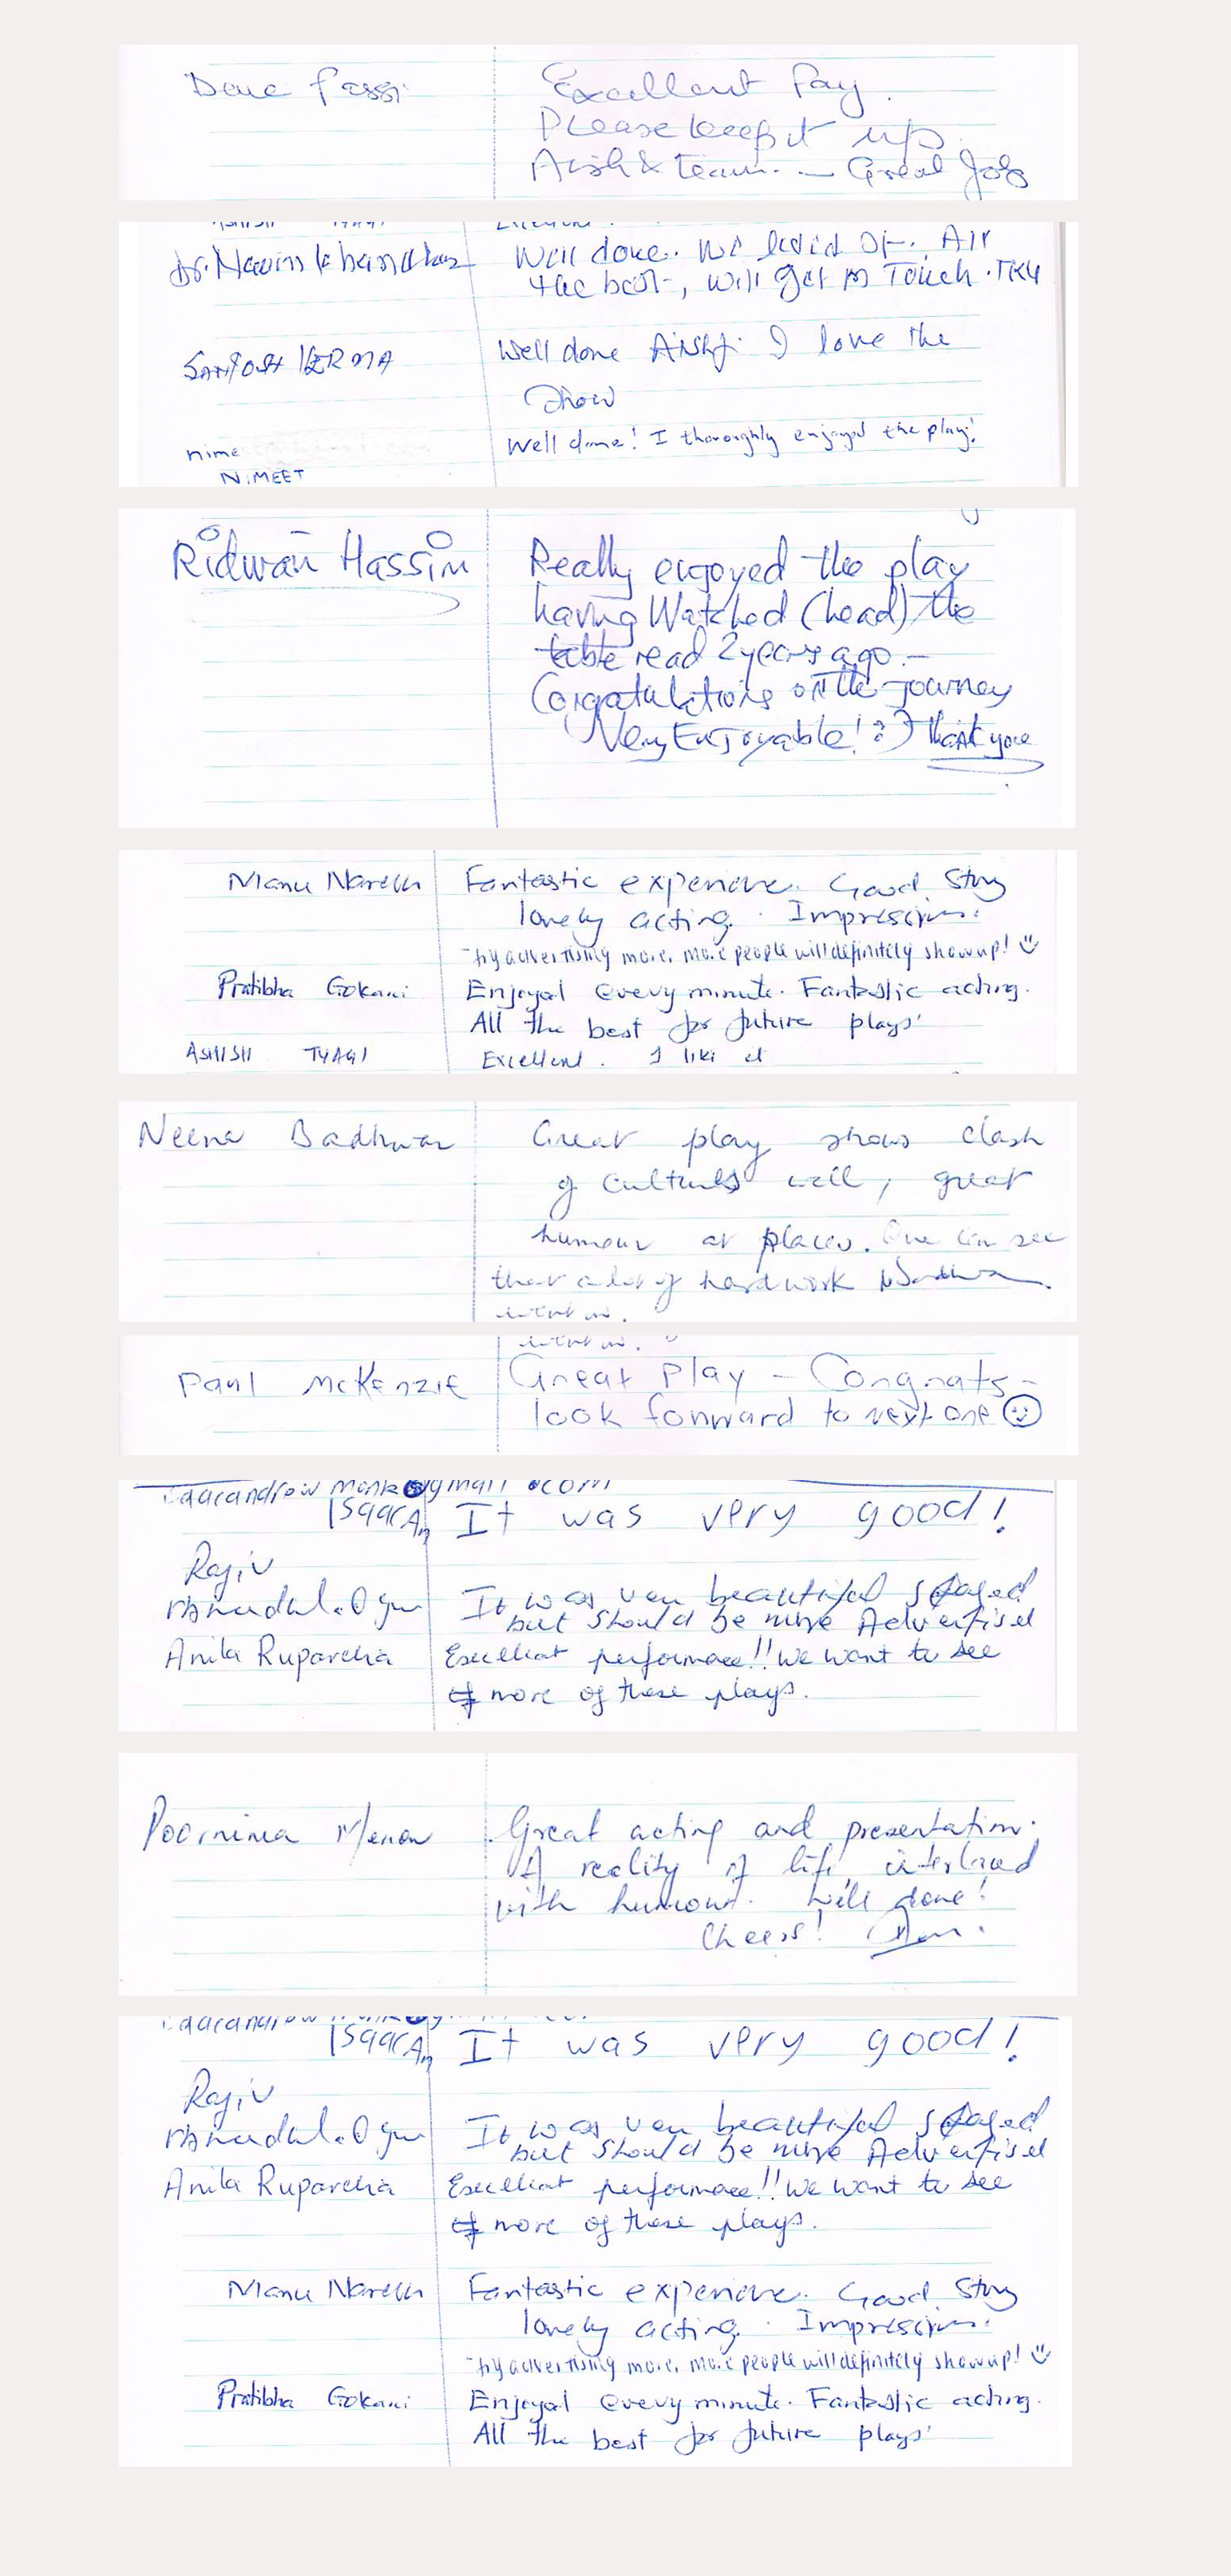 Excellent Pay.
Please keep it up
Aish & team. — Great Job
Dr. Navin Khandhar Well done. We loved it. All
the best, will get in Touch. TKU
SANTOSH VERMA Well done Aishji. I love the
Show
nime Well done! I thoroughly enjoyed the play!
NIMEET
Ridwan Hassim Really enjoyed the play
having Watched (head) the
table read 2 years ago —
Congratulations on the journey
Very Enjoyable! :) Thank you
Manu Fantastic experience. Good Story
lovely acting. Impressive.
-try advertising more, more people will definitely show up!
Pratibha Gokani Enjoyed every minute. Fantastic acting.
All the best for future plays
ASHISH TYAGI Excellent. I like it
Neena Badhwar Great play shows clash
of cultures well, great
humour at places. One can see
that a lot of hard work
went in.
Paul McKenzie Great Play - Congrats -
look forward to next one
Isaac An It was very good!
Rajiv
It was very beautiful staged
but should be more Advertised
Anila Ruparelia Excellent performance!! We want to see
more of these plays.
Poornima Menon Great acting and presentation.
A reality of life interlaced
with humour. Well done!
Cheers!
Isaac An It was very good!
Rajiv
It was very beautiful staged
but should be more Advertised
Anila Ruparelia Excellent performance!! We want to see
more of these plays.
Manu Fantastic experience. Good Story
lovely acting. Impressive.
-try advertising more, more people will definitely show up!
Pratibha Gokani Enjoyed every minute. Fantastic acting.
All the best for future plays